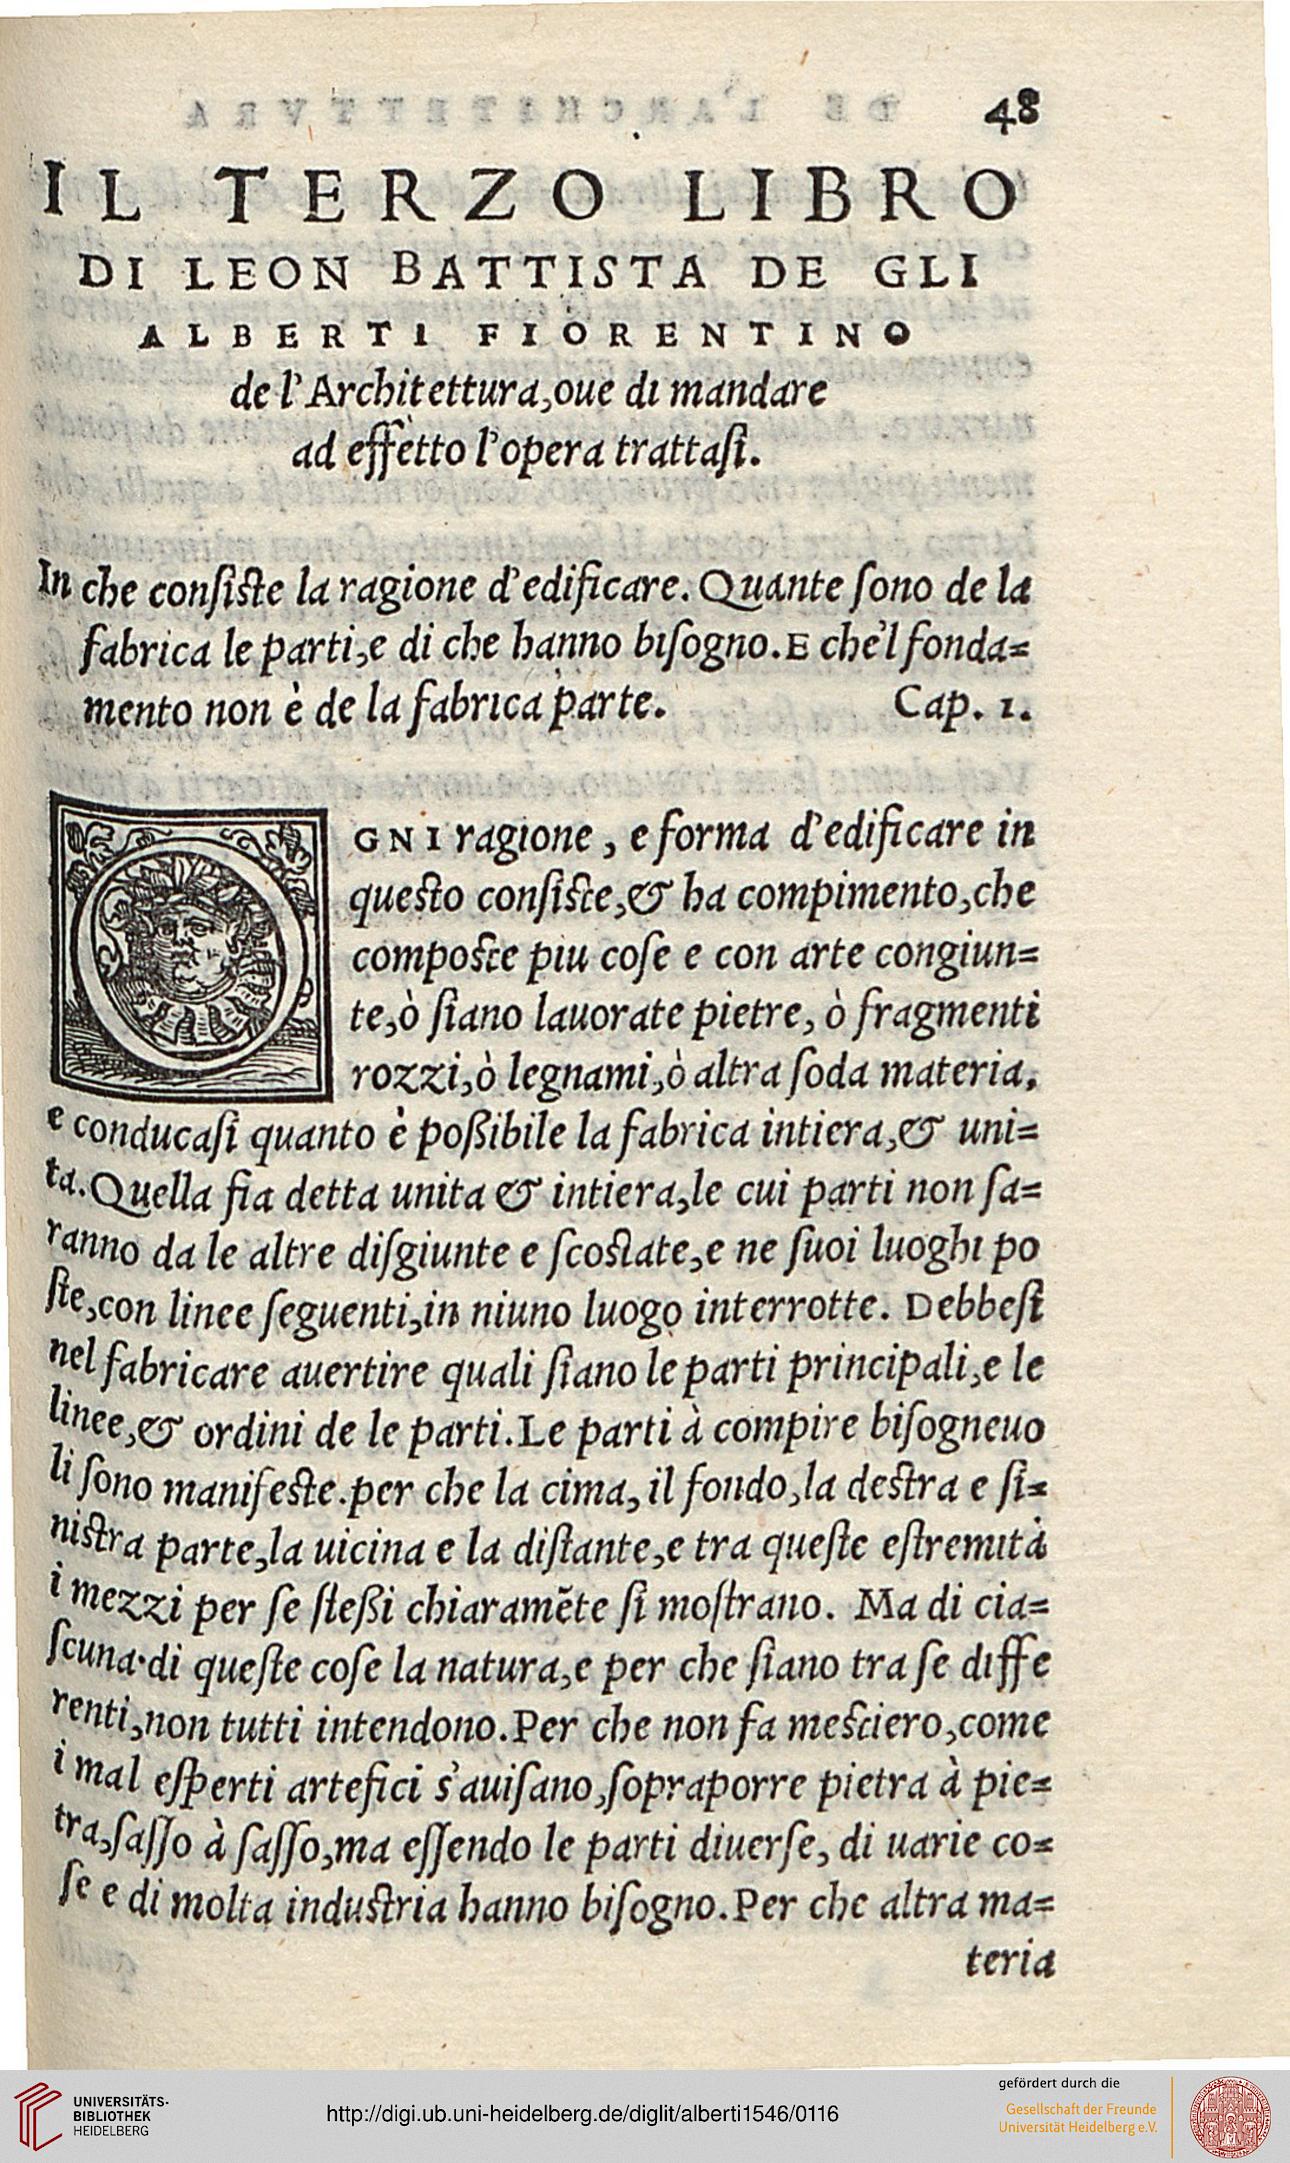 48
IL TERZO LIBRO
DI LEON BATTISTA DE GLI
ALBERTI FIORENTINO
de l'Architettura,oue di mandare
ad effetto l'opera trattaſi.
In che conſiſte la ragione d'edificare. Quante ſono de la
fabrica le parti,e di che hanno biſogno.E che'l fonda=
mento non è de la fabrica parte. Cap. 1.
OGNI ragione , e forma d'edificare in
queſto conſiſte,& ha compimento,che
compoſte piu coſe e con arte congiun=
te,ò ſiano lauorate pietre, ò fragmenti
rozzi,ò legnami,ò altra ſoda materia,
e conducaſi quanto è poßibile la fabrica intiera,& uni=
ta.Quella fia detta unita & intiera,le cui parti non ſa=
ranno da le altre diſgiunte e ſcoſtate,e ne ſuoi luoghi po
ſte,con linee ſeguenti,in niuno luogo interrotte. Debbeſi
nel fabricare auertire quali ſiano le parti principali,e le
linee,& ordini de le parti.Le parti à compire biſogneuo
li ſono manifeſte.per che la cima, il fondo,la deſtra e ſi=
niſtra parte,la uicina e la diſtante,e tra queſte eſtremità
i mezzi per ſe ſteßi chiaramẽte ſi moſtrano. Ma di cia=
ſcuna di queſte coſe la natura,e per che ſiano tra ſe diffe
renti,non tutti intendono.Per che non fa meſtiero,come
i mal eſperti artefici s'auiſano,ſopraporre pietra à pie=
tra,ſaſſo à ſaſſo,ma eſſendo le parti diuerſe, di uarie co=
ſe e di molta induſtria hanno biſogno.Per che altra ma=
teria
UNIVERSITÄTS-
BIBLIOTHEK
HEIDELBERG
http://digi.ub.uni-heidelberg.de/diglit/alberti1546/0116
gefördert durch die
Gesellschaft der Freunde
Universität Heidelberg e.V.